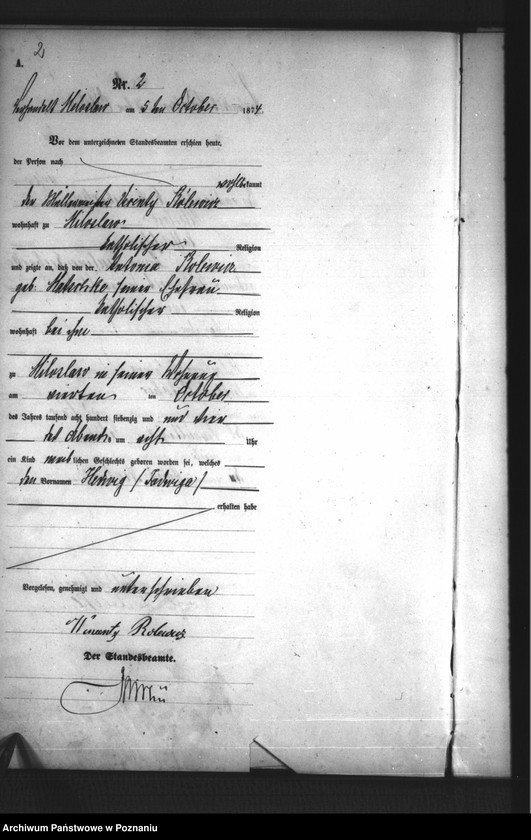 2
A.
Nr. 2
Verhandelt Miloslaw am 5 ten October 1874
Vor dem unterzeichneten Standesbeamten erschien heute,
der Person nach
wohl bekannt
der Müllermeister Vicenty Rólewicz
wohnhaft zu Miloslaw
katholischer Religion
und zeigte an, daß von der Antonia Rolewicz
geb. seiner Ehefrau
katholischer Religion
wohnhaft bei ihm
zu Miloslaw in seiner Wohnung
am vierten ten October
des Jahres tausend acht hundert siebenzig und und vier
des Abends um acht Uhr
ein Kind weiblichen Geschlechts geboren worden sei, welches
den Vornamen Hedwig (Jadwiga)
erhalten habe
Vorgelesen, genehmigt und unterschrieben
Wincenty Rolewicz
Der Standesbeamte.
Archiwum Państwowe w Poznaniu